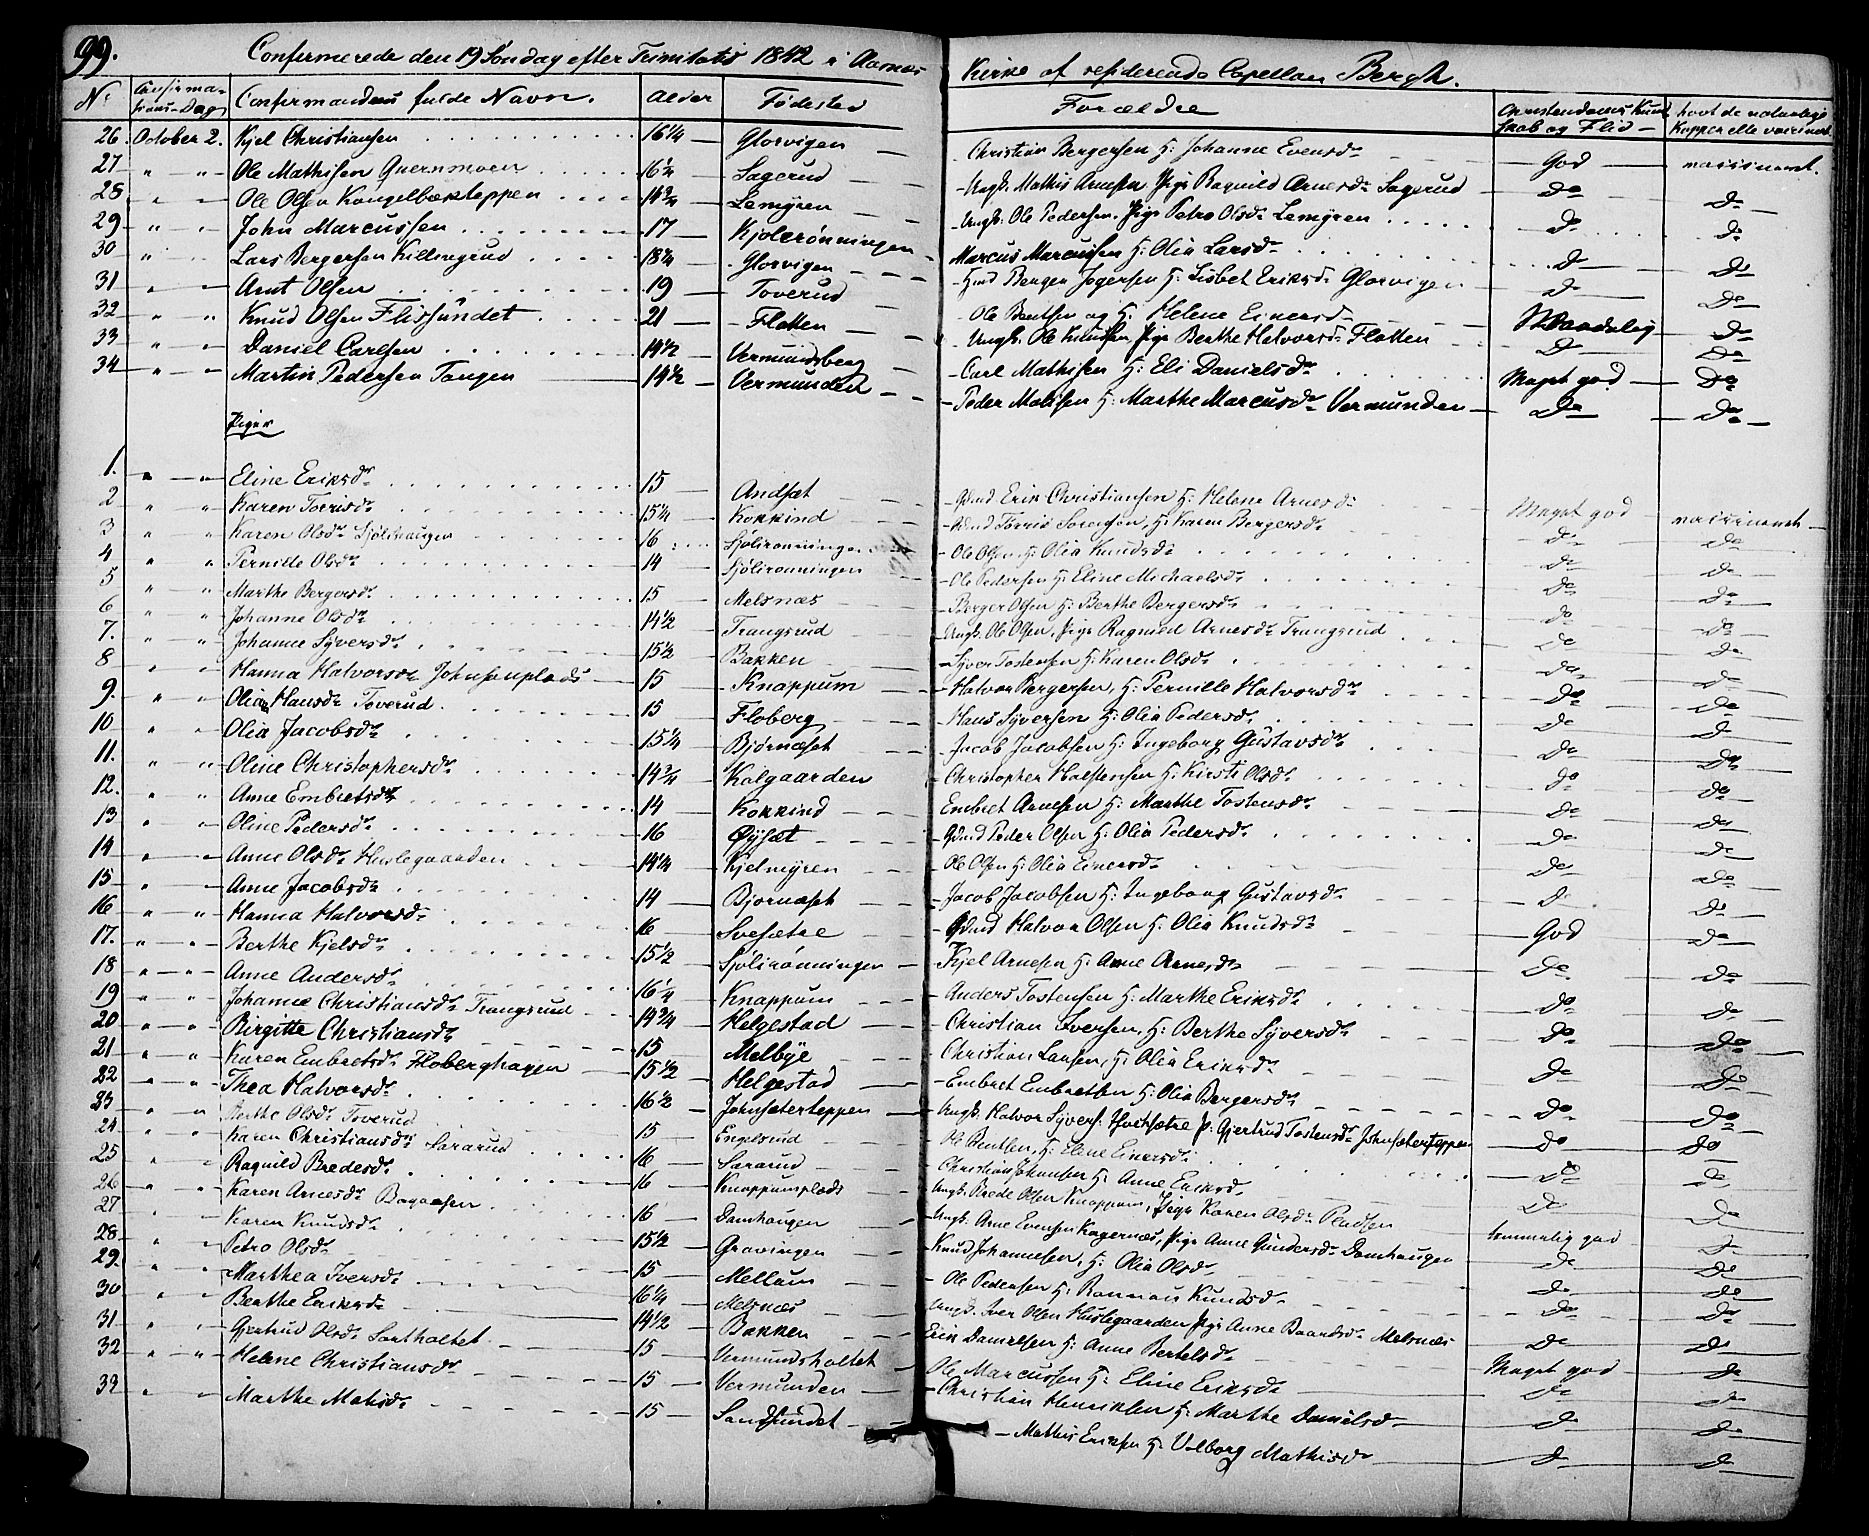 99.
Confirmerede den 19 Søndag efter Trinitatis 1842 i Aasnes Kirke af residerende Capellan Bergh.
No Confirmations-Dag Confirmandens fulde Navn. Alder Fødested Forældre Christendoms Kundskab og Flid havt de naturlige Kopper elle vaccineret
26. October 2. Kjel Christiansen 16 1/4 Glorvigen Christian Bergersen H: Johanne Evensdr God vaccineret.
27 " " Ole Mathisen Quernmoen 16 1/4 Sagerud Ungk. Mathis Arnesen Pige Ragnild Arnesdr Sagerud Do Do
28 " " Ole Olsen Kongelbækteppen 14 3/4 Lemyren Ungk: Ole Pedersen, Pige Petro Olsdr Lemyren Do Do
29 " " John Marcussen 17 Kjolerønningen Marcus Marcussen H: Olia Larsdr Do Do
30 " " Lars Bergersen Killingrud 18 3/4 Glorvigen Hmd Berger Jogersen H: Lisbet Eriksdr Glorvigen Do Do
31 " " Arnt Olsen 19 Toverud Ole Bentsen og H: Helene Einersd Maadelig Do
32 " " Knud Olsen Flissundet 21 Flatten Ungk. Ole Knudsen, Pige Berthe Halvorsdr Flatten Do Do
33 " " Daniel Carlsen 14 1/2 Vermundsberg Carl Mathisen H: Eli Danielsdr Meget god Do
34 " " Martin Pedersen Tangen 14 1/2 Vermunden Peder Matisen H: Marthe Marcusdr Vermunden Do Do
Piger
1. " " Eline Eriksdr 15 Andsæt Gmd Erik Christiansen H: Helene Arnesdr Meget god vaccineret
2 " " Karen Torrisdr 15 1/4 Kokkind Gmd Torris Sorensen, H: Karen Bergersdr Do Do
3 " " Karen Olsdr Sjølihaugen 16 Sjølirønningen Ole Olsen, H: Olia Knudsdr Do Do
4 " " Pernille Olsdr 14 Sjølirønningen Ole Pedersen H: Eline Michaelsdr Do Do
5 " " Marthe Bergersdr 15 Melsnæs Berger Olsen H: Berthe Bergersdr Do Do
6 " " Johanne Olsdr 14 1/2 Trangsrud Ungk. Ole Olsen, Pige Ragnild Arnesdr Trangsrud Do Do
7. " " Johanne Syversdr 15 1/2 Bakken Syver Tostensen H: Karen Olsdr Do Do
8 " " Hanna Halvorsdr Johnsenplads 15 Knappum Halvor Bergersen, H: Pernille Halvorsdr Do Do
9. " " Olia Hansdr Toverud 15 Floberg Hans Syversen H: Olia Pedersdr Do Do
10 " " Olia Jacobsdr 15 1/4 Bjørnæset Jacob Jacobsen H: Ingeborg Gustavsdr Do Do
11. " " Oline Christophersdr 14 3/4 Kolgaarden Christopher Halstensen H: Kirsti Olsdr Do Do
12. " " Anne Embretsdr 14 Kokkind Embret Arnesen H: Marthe Tostensdr Do Do
13 " " Oline Pedersdr 16 Øysæt Gmd Peder Olsen H: Olia Pedersdr Do Do
14 " " Anne Olsdr Huslegaarden 14 1/4 Kjelmyren Ole Olsen H: Olia Einersdr Do Do
15 " " Anne Jacobsdr 14 Bjornæset Jacob Jacobsen H: Ingeborg Gustavsdr D Do
16 " " Hanna Halvorsdr 16 Svesætre Gmd Halvor Olsen H: Olia Knudsdr God Do
17. " " Berthe Kjelsdr 15 1/2 Sjølirønningen Kjel Arnesen H: Anne Arnesdr Do Do
18 " " Anne Andersdr 16 1/4 Knappum Anders Tostensen H: Marthe Eriksdr Do Do
19 " " Johanne Christiansdr Trangsrud 14 3/4 Helgestad Christian Iversen, H: Berthe Syversdr Do Do
20 " " Birgitte Christiansdr 15 Melbye Christian Larsen, H: Olia Eriksdr Do Do
21 " " Karen Embretsdr Floberghagen 15 1/2 Helgestad Embret Embretsen H: Olia Bergersdr Do Do
22 " " Thea Halvorsdr 16 1/2 Johnsæterteppen Ungk. Halvor Syvers: Hvitsætre P: Gjertrud Tostensdr Johnsæterteppen Do Do
23 " " Berthe Olsdr Toverud 15 Engelsrud Ole Bentsen, H: Eline Einersdr Do Do
24 " " Karen Christiansdr Sararud 16 Sararud Christian Johansen H: Anne Eriksdr Do Do
25 " " Ragnild Bredesdr 16 Knappumplads Ungk. Brede Olsen Knappum, Pige Karen Olsdr Pladsen Do Do
26 " " Karen Arnesdr Bagaasen 16 Damhaugen Ungk. Arne Evensen Kagernæs, Pige Anne Gundersdr Damhaugen temmelig god Do
27 " " Karen Knudsdr 15 1/2 Gravingen Knud Johannesen, H: Olia Olsdr Do Do
28 " Petro Olsdr 15 Mellum Ole Pedersen H: Rannau Knudsdr Do Do
29. " " Marthea Iversdr 16 1/4 Melsnæs Ungk. Iver Olsen Huslegaarden Pige Anne Baardsdr Melsnæs Do Do
30 " " Berthe Eriksdr 14 1/2 Bakken Erik Danielsen H: Anne Bertelsdr Do Do
31 " " Gjertrud Olsdr Sortholtet 15 Vermundsholtet Ole Marcussen H: Eline Eriksdr Meget god Do
32 " " Helene Christiansdr 15 Vermunden Christian Henriksen H: Marthe Danielsdr Do Do
33 " " Marthe Matisdr 15 Sandsundet Mathis Eriksen H: Valborg Mathisdr Do Do